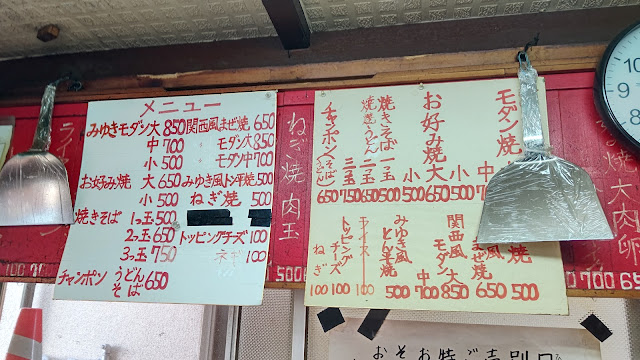 メニュー
みゆきモダン大 850
中 700
小 500
お好み焼 大 650
小 500
焼きそば 1っ玉 500
2っ玉 650
3っ玉 750
チャンポン うどん そば 650
関西風まぜ焼 650
〃 モダン大 850
〃 モダン中 700
みゆき風トン平焼 500
ねぎ焼 500
トッピングチーズ 100
ネギ 100
ねぎ焼 肉玉
500
モダン焼
中
小
お好み焼
大 650
小 500
焼きそば
焼きうどん
一玉 500
二玉 650
三玉 750
チャンポン(そばうどん) 650
まぜ焼 650
関西風
モダン焼
大 850
中 700
みゆき風とん平焼 500
ライス 100
トッピングチーズ 100
ねぎ 100
焼 500
大肉卵
700 650
10
9
8